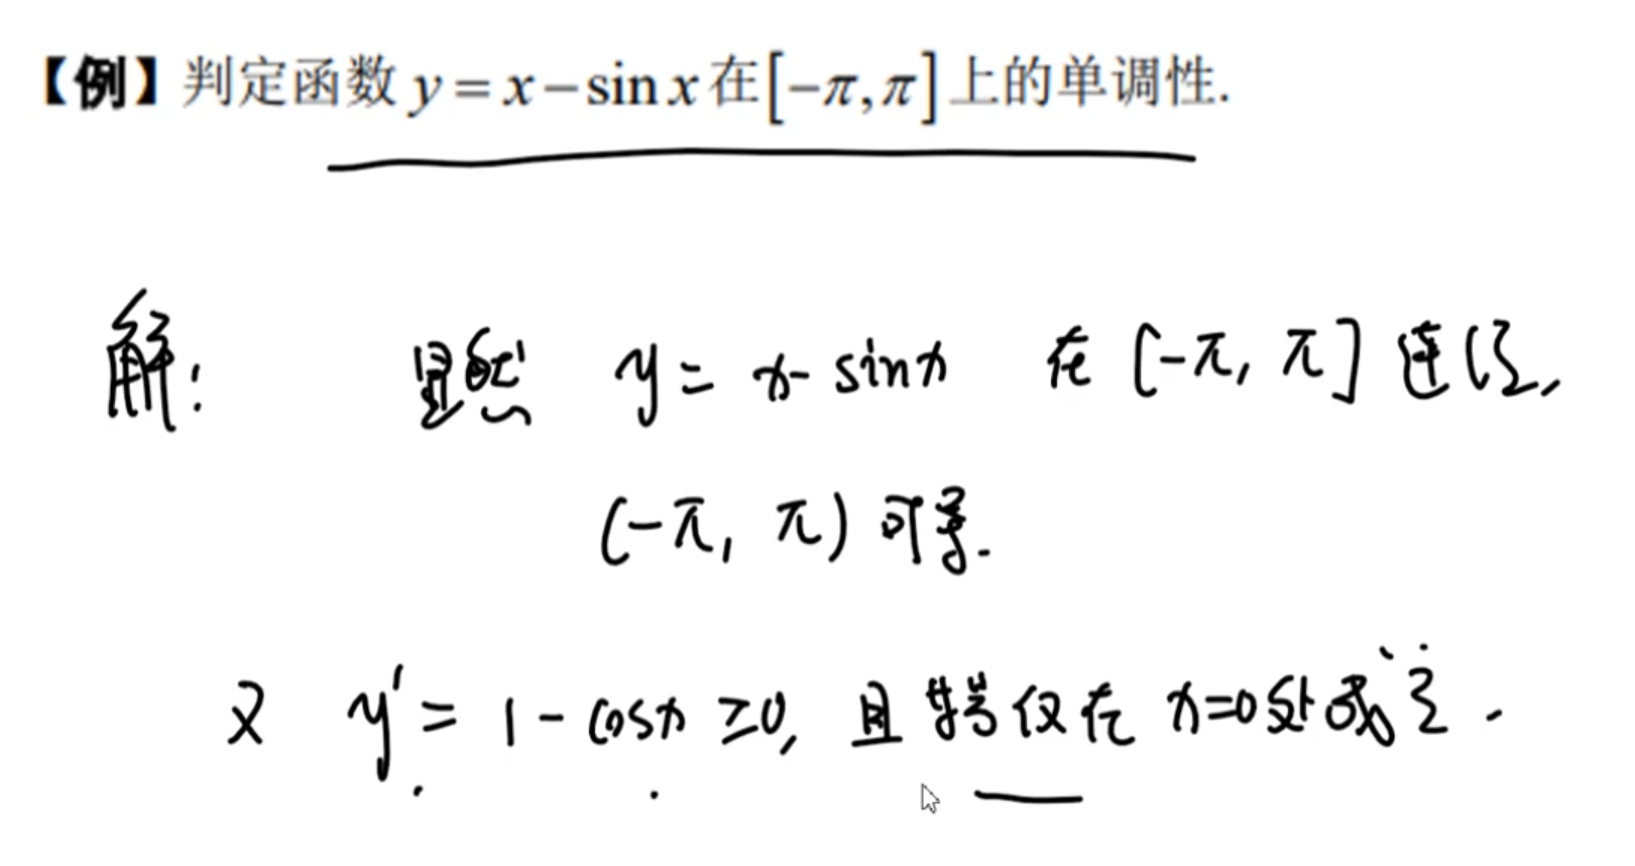 【例】判定函数 y = x − sin x 在 [−π, π] 上的单调性.
解: 显然 y = x - sin x 在 [-π, π] 连续,
(-π, π) 可导.
又 y' = 1 - cos x ≥ 0, 且等号仅在 x=0处成立.